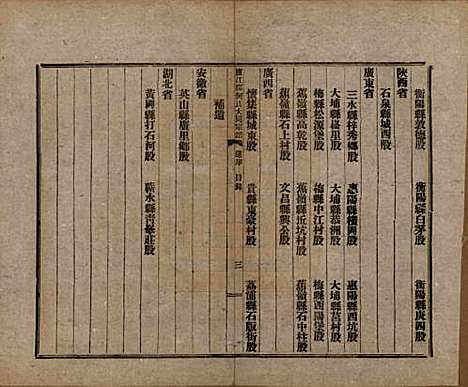 衡陽縣敦德股 衡陽縣白茅股 衡陽縣庚四股
陝西省
石泉縣城西股
廣東省
三水縣梓秀鄉股 惠陽縣橫岡股 惠陽縣西坑股
大埔縣崧里股 大埔縣恭洲股 大埔縣莒村股
梅縣松源堡股 梅縣中江村股 梅縣西陽堡股
蕉嶺縣高乾股 蕉嶺縣近坑村股 蕉嶺縣石中柱股
蕉嶺縣石上村股 文昌縣興公股
廣西省
懷集縣城東股 貴縣東龍村股 荔浦縣石版街股
廬江郡何氏大同宗譜 總序 目錄 三
補遺
安徽省
英山縣廣里鄉股
湖北省
黃岡縣打石河股 蘄水縣青臺莊股